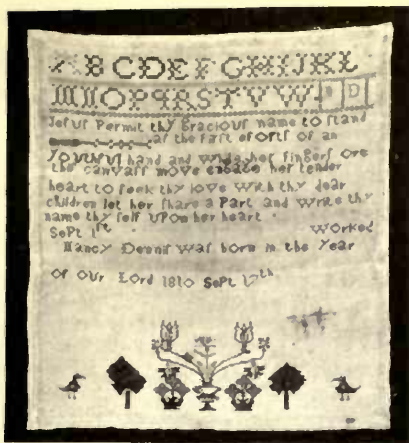 A B C D E F G H I J K L
M N O P Q R S T V W
Jesus Permit thy Gracious name to stand
as the fast eforts of an
Youthful hand and while her fingers ore
the canvass move engage her tender
heart to seek thy love with thy dear
children let her share a Part and write thy
name thy self upon her heart
Sept 1st worked
Nancy Dennis was born in the Year
of our Lord 1810 Sept 17th